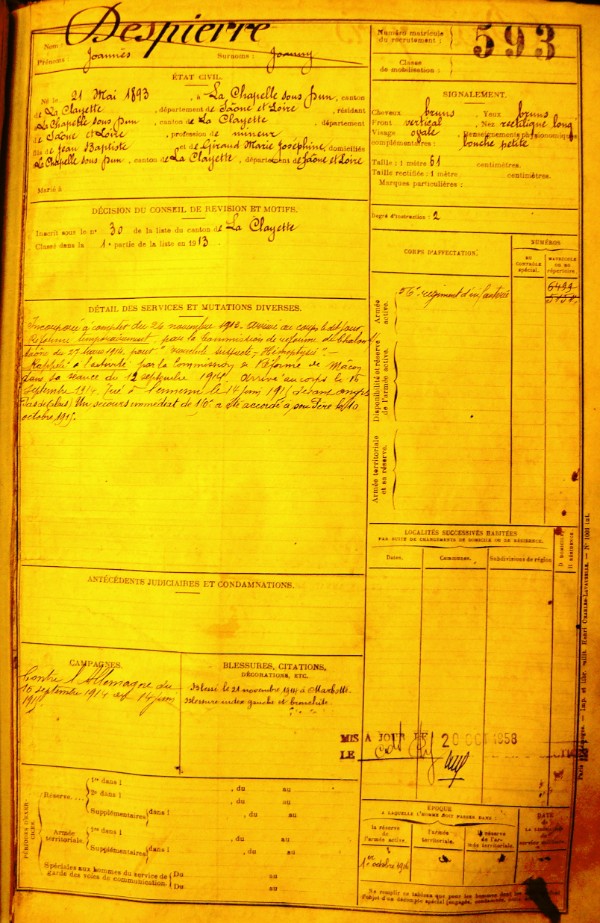 Nom : Despierre
Prénoms : Joannès Surnoms : Joanny
Numéro matricule
du recrutement :
593
Classe
de mobilisation :
ÉTAT CIVIL.
Né le 21 Mai 1893, à La Chapelle sous Dun, canton
de La Clayette, département de Saône et Loire, résidant
La Chapelle sous Dun, canton de La Clayette, département
de Saône et Loire, profession de mineur
fils de Jean Baptiste et de Giraud Marie Joséphine, domiciliés
La Chapelle sous Dun, canton de La Clayette, département de Saône et Loire
Marié à
SIGNALEMENT.
Cheveux bruns Yeux bruns
Front vertical Nez rectiligne long
Visage ovale Renseignements physionomiques
complémentaires : bouche petite
Taille : 1 mètre 61 centimètres.
Taille rectifiée : 1 mètre centimètres.
Marques particulières :
Degré d'instruction : 2
DÉCISION DU CONSEIL DE REVISION ET MOTIFS.
Inscrit sous le n° 30 de la liste du canton de La Clayette
Classé dans la 1e partie de la liste en 1913
CORPS D'AFFECTATION.
NUMÉROS
AU CONTRÔLE spécial.
MATRICULE OU AU répertoire.
Armée active.
56e régiment d'infanterie
Disponibilité et réserve de l'armée active.
Armée territoriale et sa réserve.
DÉTAIL DES SERVICES ET MUTATIONS DIVERSES.
Incorporé à compter du 26 novembre 1913. Arrivé au corps le dit jour
Réformé temporairement par la Commission de réforme de Chalon
Saône du 27 mars 1914 pour
Rappelé à l'activité par la Commission de Réforme de Mâcon
dans sa séance du 12 septembre 1914 arrivé au corps le 16
septembre 1914 Tué à l'ennemi le 14 juin 1915 devant
(Pas de Calais) Un secours immédiat de 150f a été accordé à son Père le 10
octobre 1915.
LOCALITÉS SUCCESSIVES HABITÉES
PAR SUITE DE CHANGEMENTS DE DOMICILE OU DE RÉSIDENCE.
Dates. Communes. Subdivisions de région. D. DOMICILE. R. RÉSIDENCE.
ANTÉCÉDENTS JUDICIAIRES ET CONDAMNATIONS.
CAMPAGNES.
Contre l'Allemagne du
16 septembre 1914 au 14 juin
1915
BLESSURES, CITATIONS,
DÉCORATIONS, ETC.
Blessé le 21 novembre 1914 à Marbotte
blessure index gauche et bronchite.
MIS A JOUR LE 20 OCT 1958
LE
PÉRIODES D'EXERCICES.
Réserve
1re dans l , du au
2e dans l , du au
Supplémentaires dans l , du au
Armée territoriale.
1re dans l , du au
Supplémentaires dans l , du au
Spéciales aux hommes du service de garde des voies de communication. Du au
Du au
ÉPOQUE
A LAQUELLE L'HOMME DOIT PASSER DANS :
la réserve de l'armée active
l'armée territoriale.
la réserve de l'armée territoriale.
DATE
1er octobre 1916